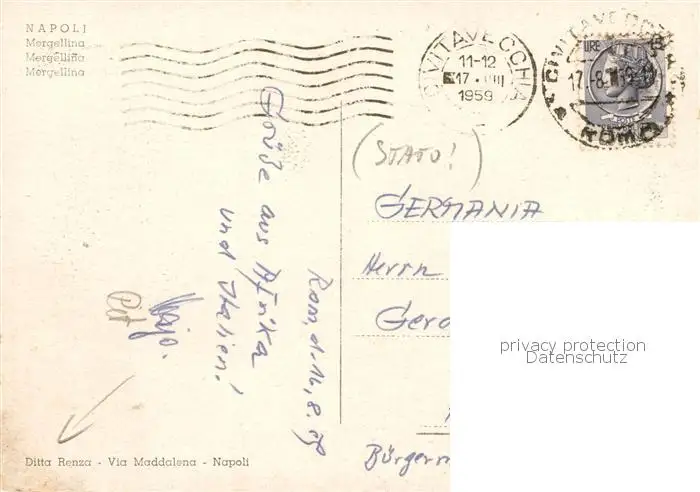 NAPOLI
Mergellina
Mergelline
Mergellina
CIVITAVECCHIA
11-12
17 VIII
1959
CIVITAVECCHIA
17.-8.
ROMA
LIRE
(STATO!)
GERMANIA
Herrn
Gero
Bürgerm
Rom, d. 16.8.59
Grüße aus Afrika
und Italien!
Ditta Renza - Via Maddalena - Napoli
privacy protection
Datenschutz